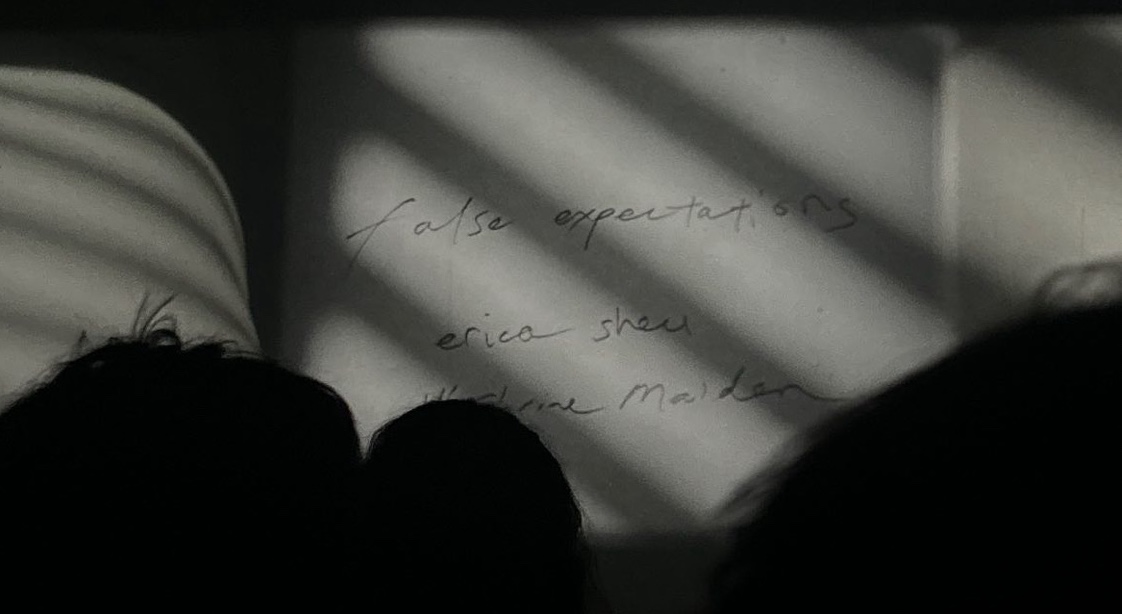 false expectations
erica sheu
Maiden